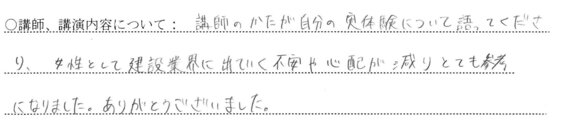 ○講師、講演内容について： 講師のかたが自分の実体験について語ってくださ
り、女性として建設業界に出ていく不安や心配が減りとても参考
になりました。ありがとうございました。